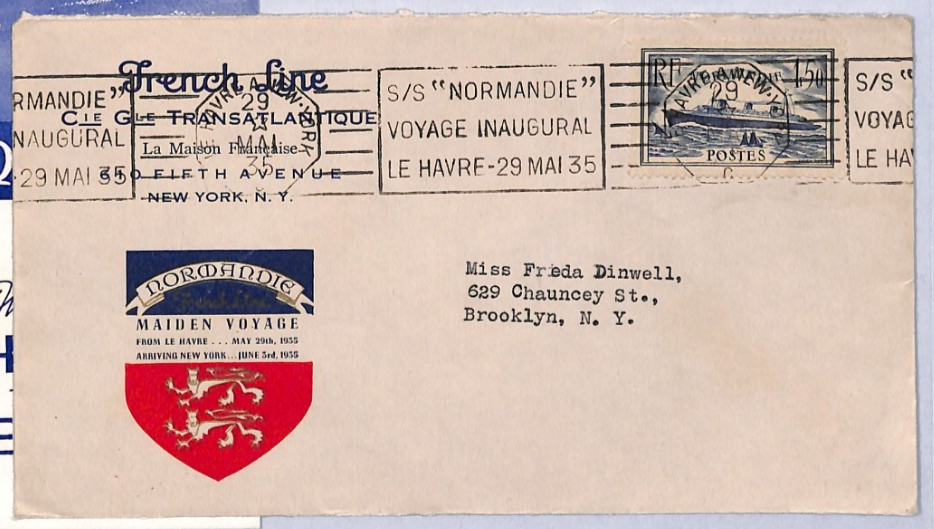 French Line
CIE GLE TRANSATLANTIQUE
La Maison Française
610 FIFTH AVENUE
NEW YORK, N. Y.
RMANDIE"
NAUGURAL
29 MAI 35
HAVRE A NEW-YORK
29
MAI
35
S/S "NORMANDIE"
VOYAGE INAUGURAL
LE HAVRE-29 MAI 35
RF
1,50
POSTES
HAVRE A NEW-
29
S/S "
VOYAG
LE HA
NORMANDIE
French Line
MAIDEN VOYAGE
FROM LE HAVRE . . . MAY 29th, 1935
ARRIVING NEW YORK...JUNE 3rd, 1935
Miss Frieda Dinwell,
629 Chauncey St.,
Brooklyn, N. Y.